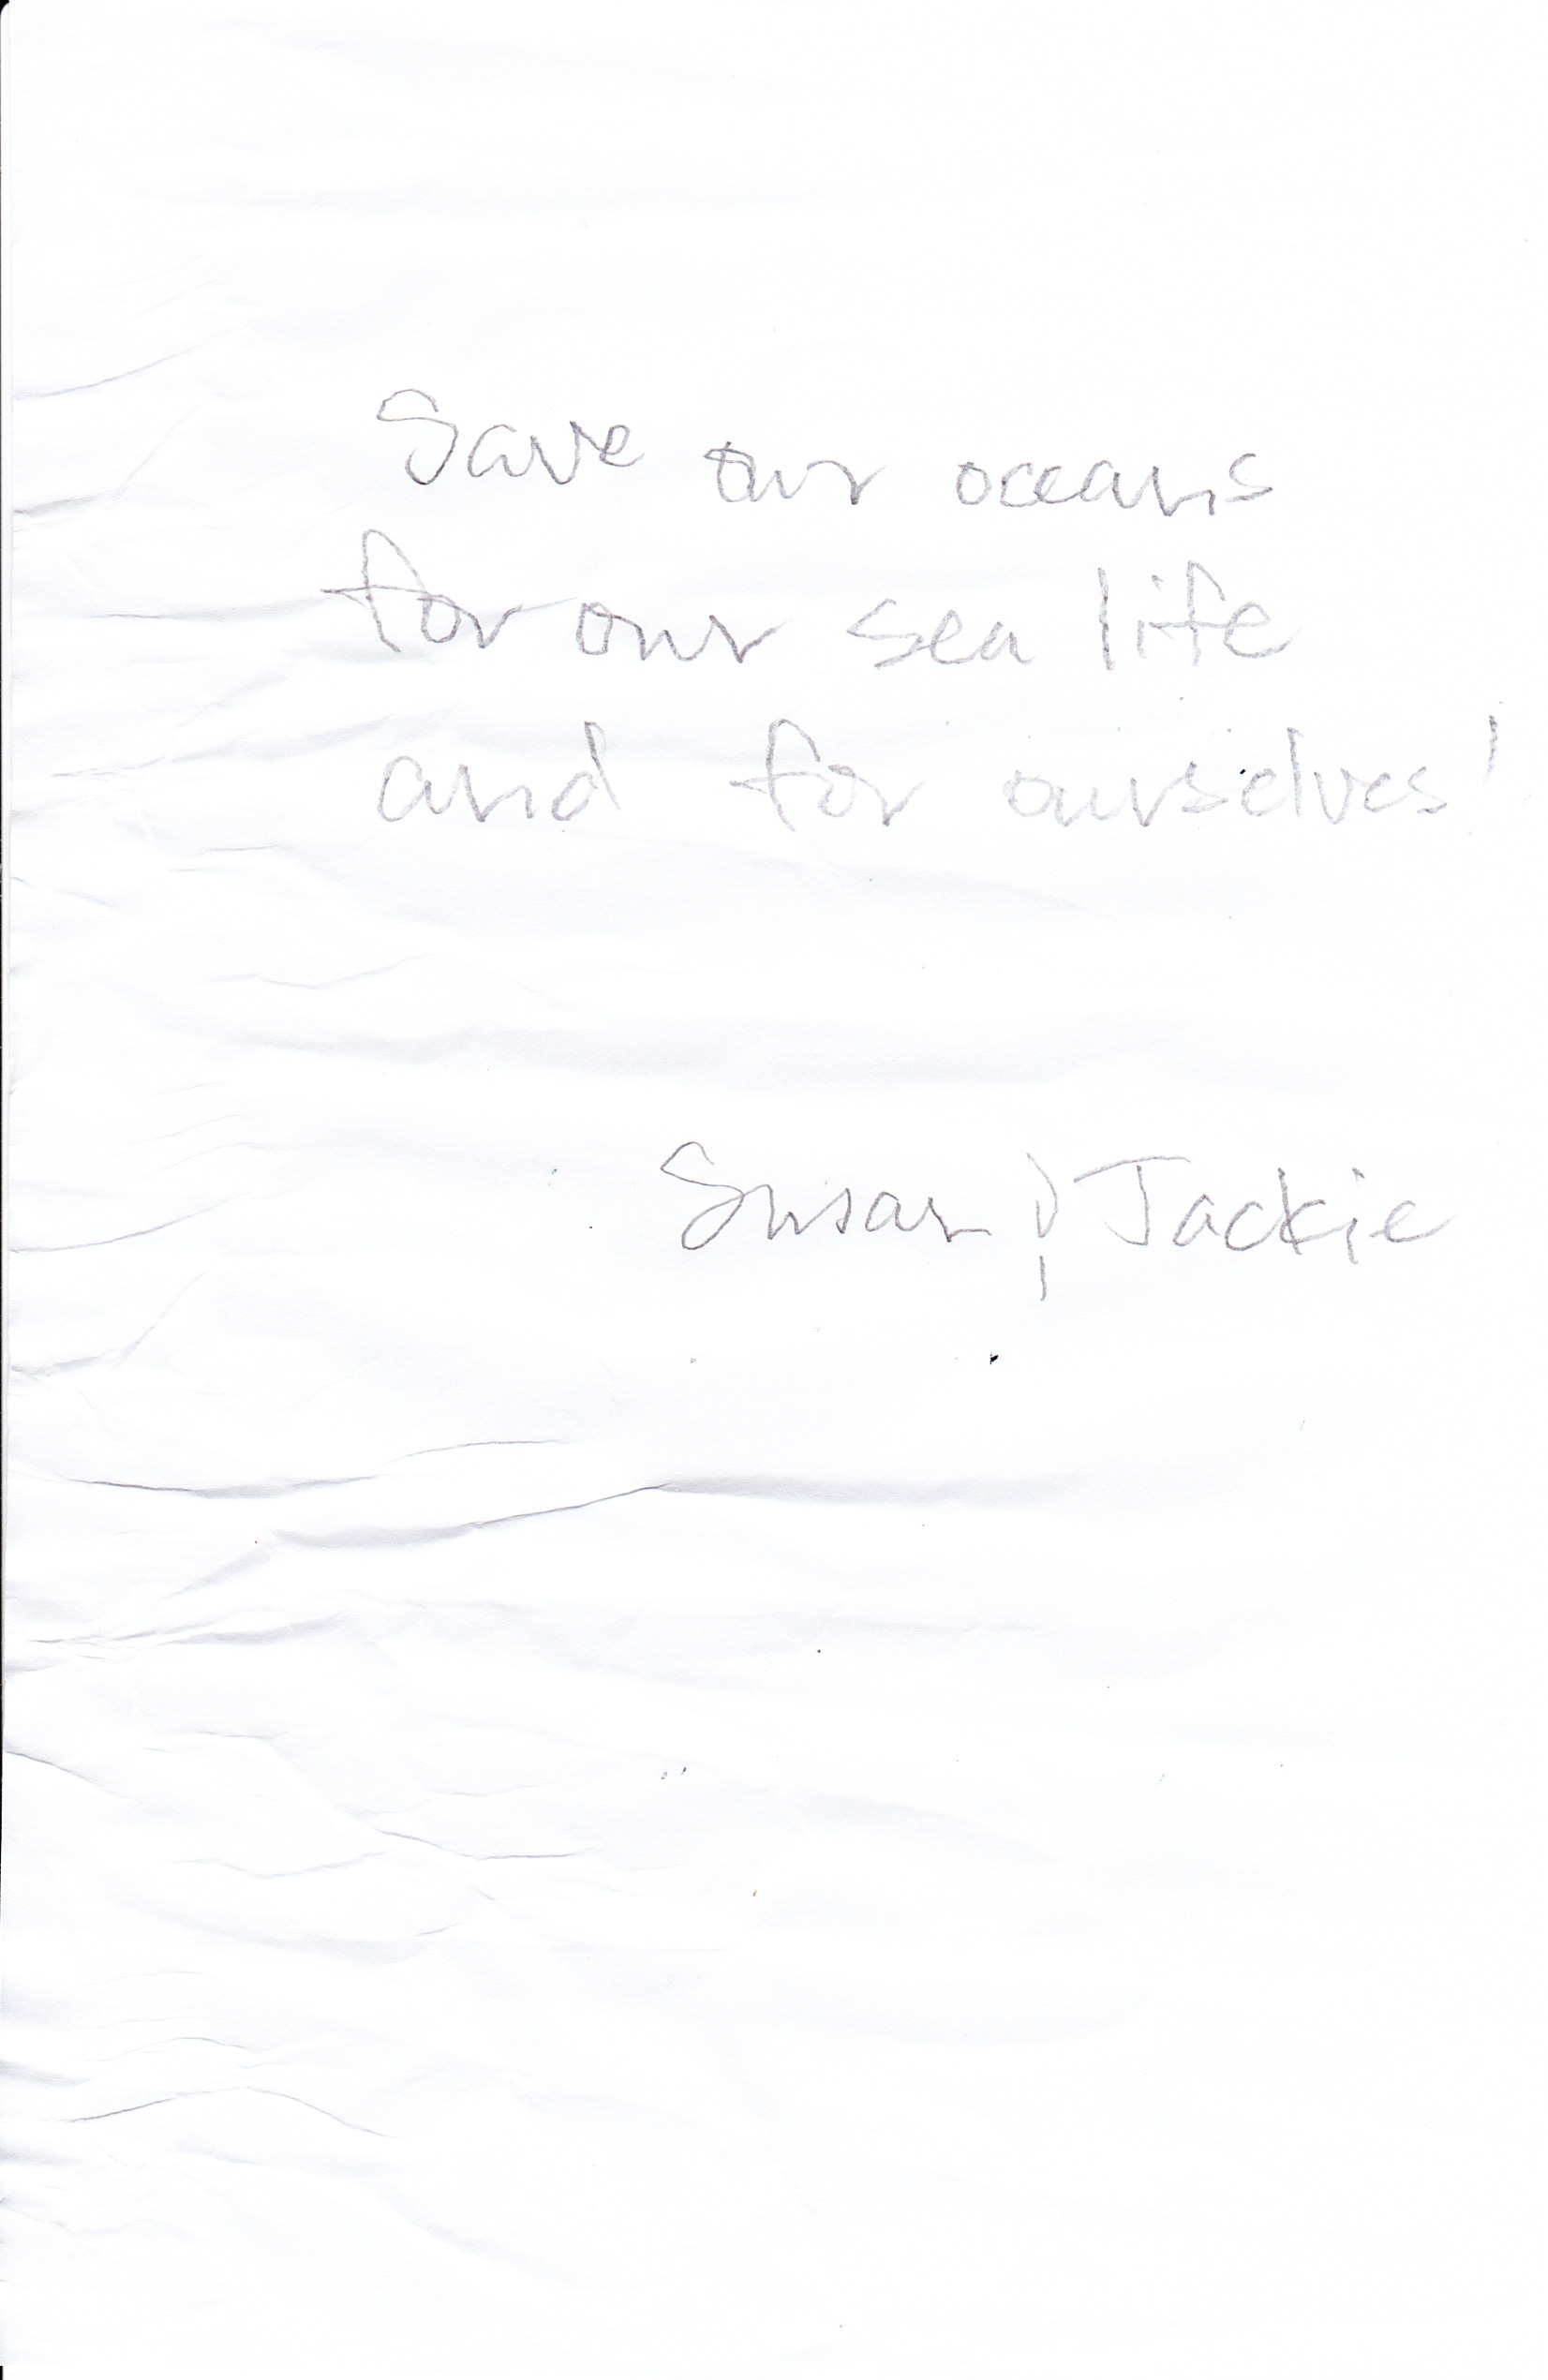 Save our oceans
for our sea life
and for ourselves!
Susan & Jackie